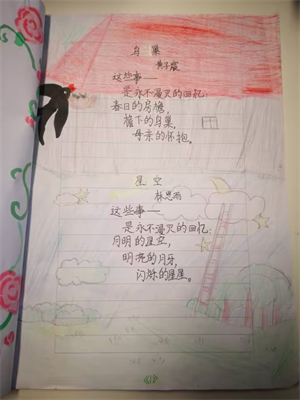 鸟巢
黄子宸
这些事——
是永不漫灭的回忆:
春日的房檐,
檐下的鸟巢,
母亲的怀抱。
星空
林思雨
这些事——
是永不漫灭的回忆:
月明的星空,
明亮的月牙,
闪烁的星星。